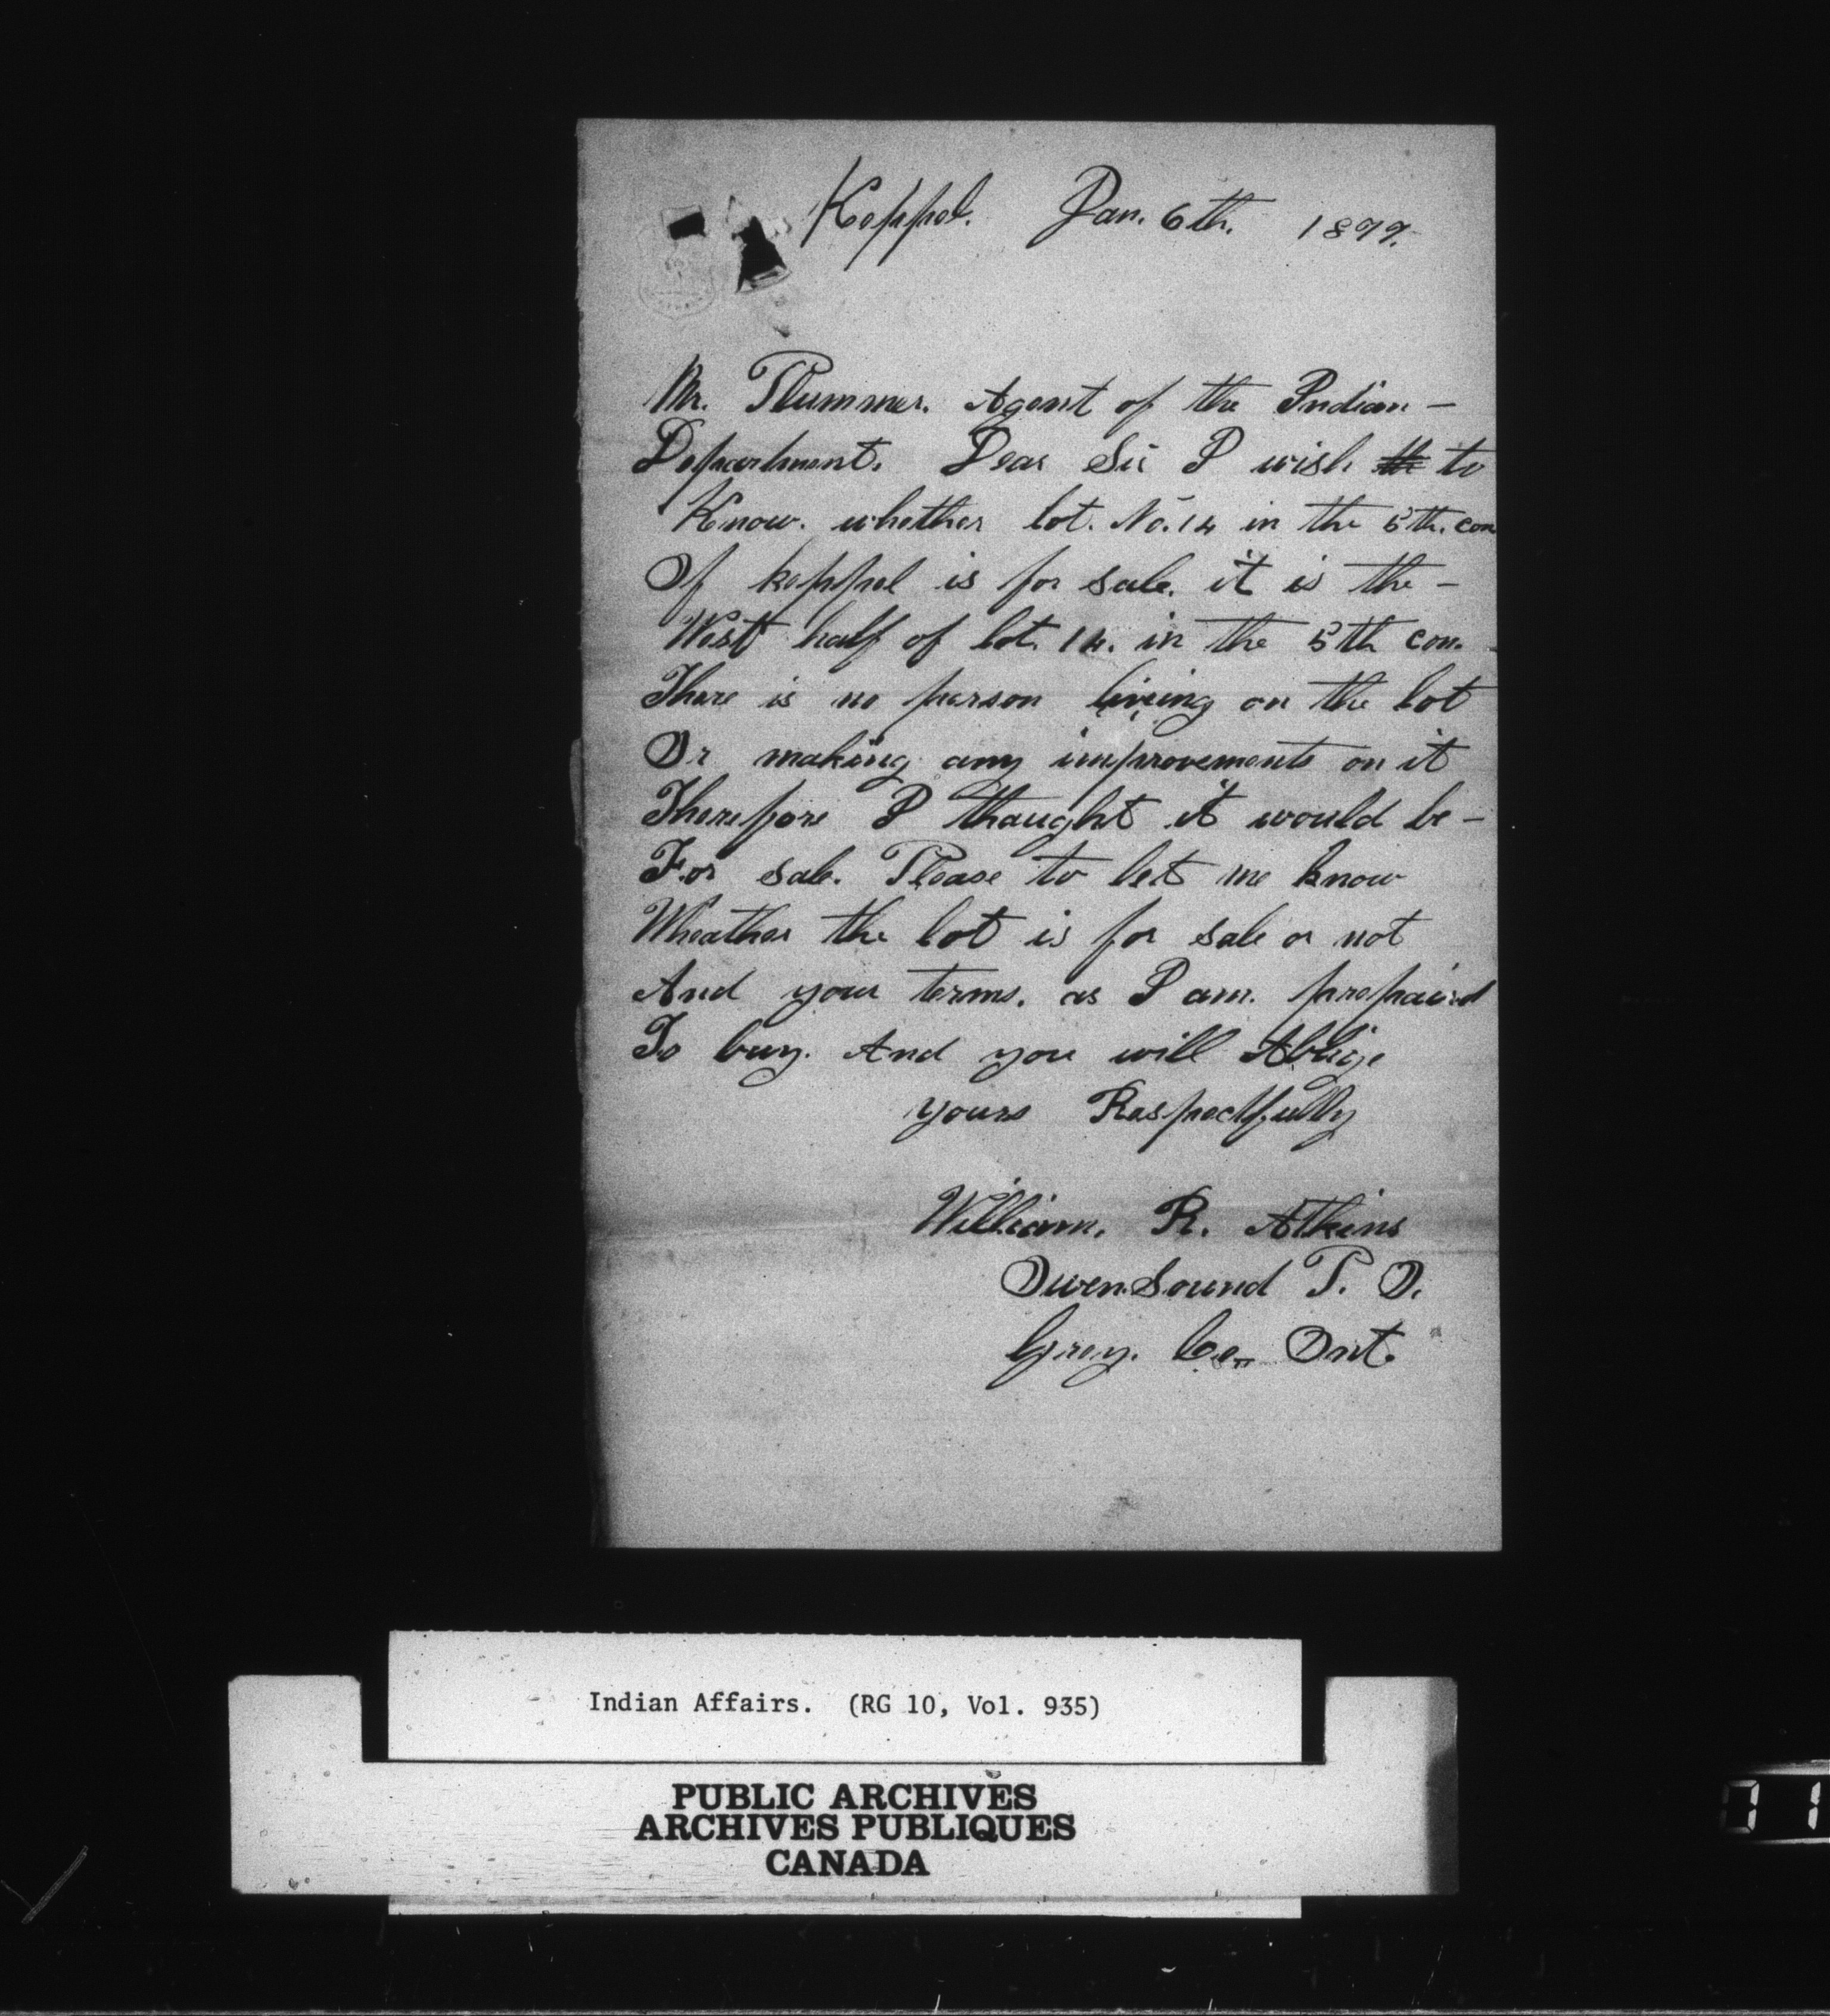 Keppel. Jan. 6th. 1877.
Mr. Plummer. Agent of the Indian -
Department. Dear Sir I wish to
Know. whether lot. No. 14 in the 5th. con
Of keppel is for sale. it is the -
West half of lot. 14. in the 5th con.
There is no person living on the lot
Or making any improvements on it
Therefore I thaught it would be -
For sale. Please to let me know
Wheather the lot is for sale or not
And your terms. as I am. prepaird
To buy. And you will Ablige
yours Respectfully
William. R. Atkins
Owen Sound P. O.
Grey. Co. Ont.
Indian Affairs. (RG 10, Vol. 935)
PUBLIC ARCHIVES
ARCHIVES PUBLIQUES
CANADA